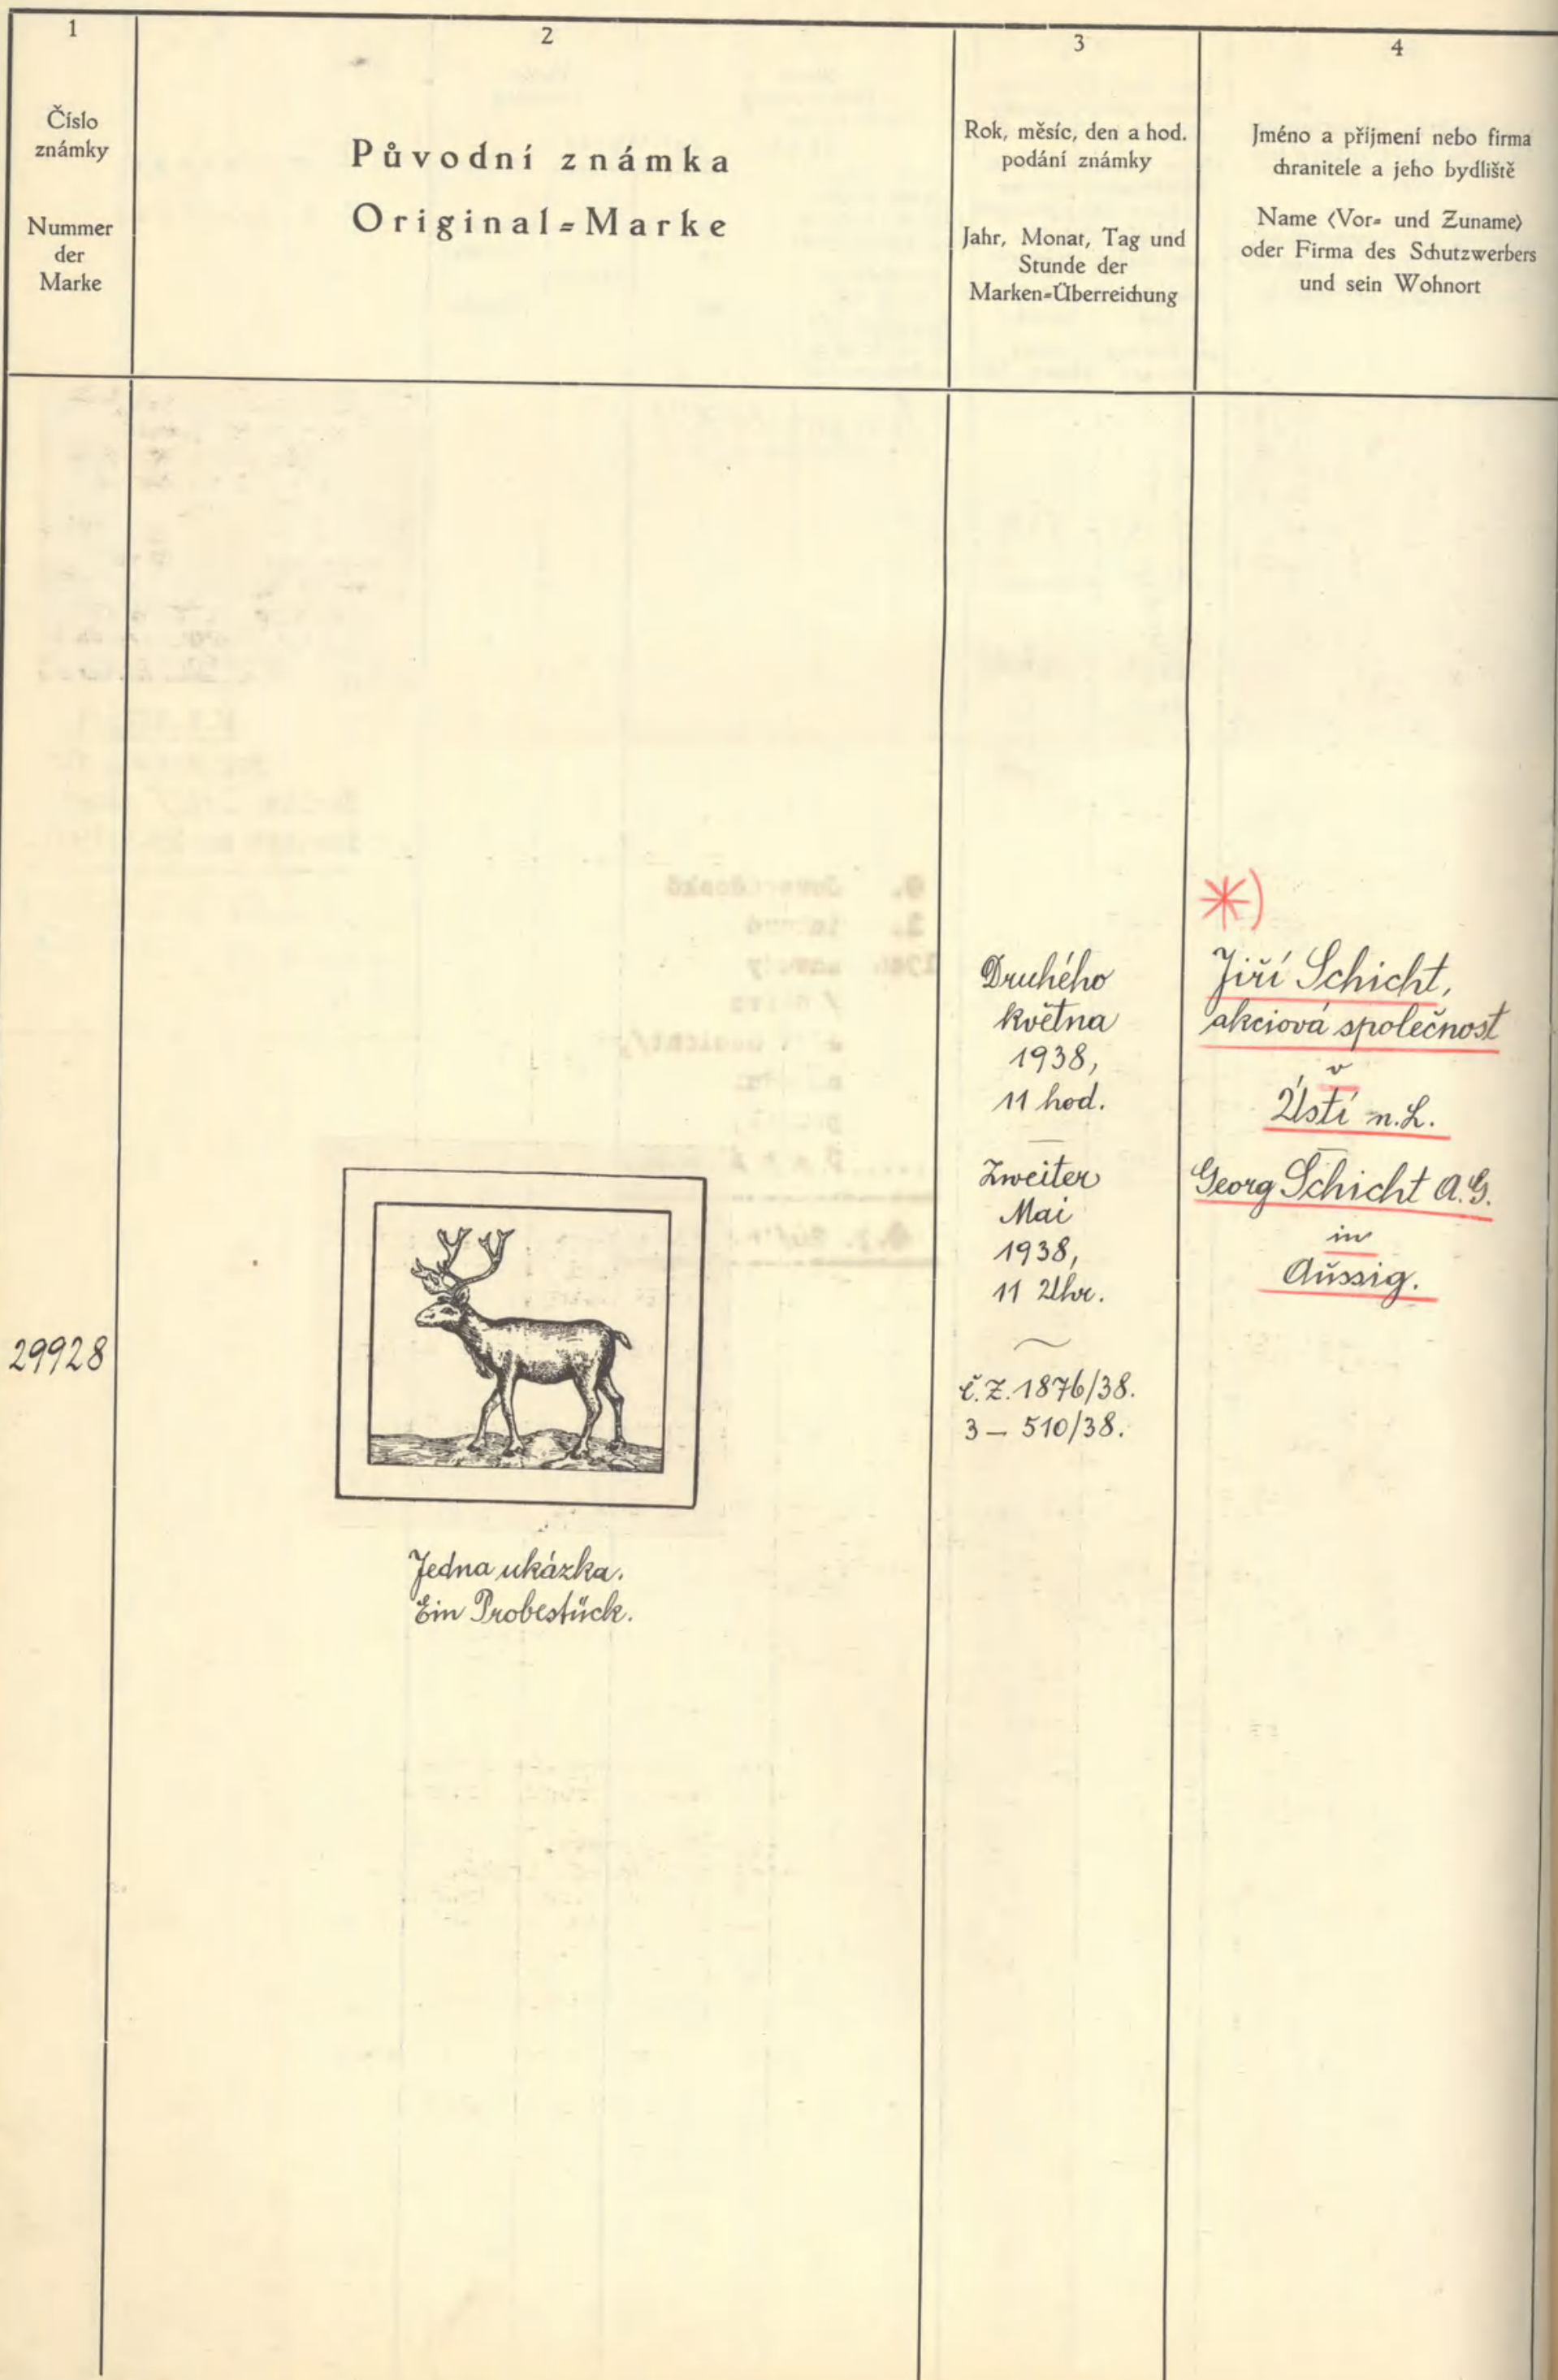 1
Číslo
známky
Nummer
der
Marke
2
Původní známka
Original=Marke
3
Rok, měsíc, den a hod.
podání známky
Jahr, Monat, Tag und
Stunde der
Marken=Überreichung
4
Jméno a příjmení nebo firma
chranitele a jeho bydliště
Name (Vor= und Zuname)
oder Firma des Schutzwerbers
und sein Wohnort
29928
Jedna ukázka.
Ein Probestück.
Druhého
května
1938,
11 hod.
Zweiter
Mai
1938,
11 Uhr.
č.z. 1876/38.
3 – 510/38.
*)
Jiří Schicht,
akciová společnost
v
Ústí n.L.
Georg Schicht A.G.
in
Aussig.